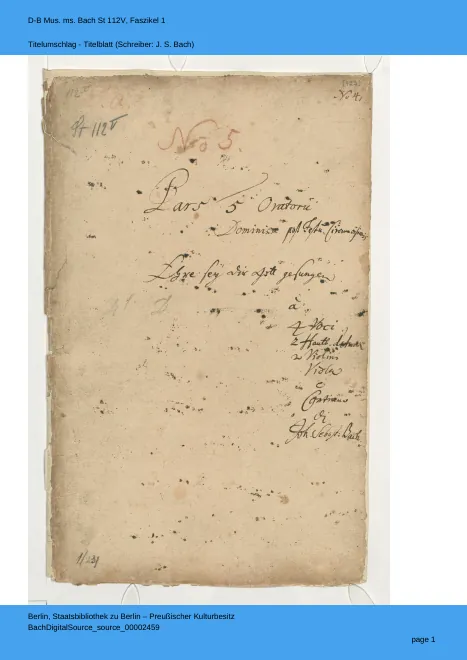 D-B Mus. ms. Bach St 112V, Faszikel 1
Titelumschlag - Titelblatt (Schreiber: J. S. Bach)
No 4.
St 112 V
No 5.
Pars 5 Oratorii
Dominica post Festum Circumcisionis
Ehre sey dir Gott gesungen
à
4 Voci
2 Hautb. d'Amour
2 Violini
Viola
e
Continuo
di
Joh. Sebast. Bach
Berlin, Staatsbibliothek zu Berlin – Preußischer Kulturbesitz
BachDigitalSource_source_00002459
page 1